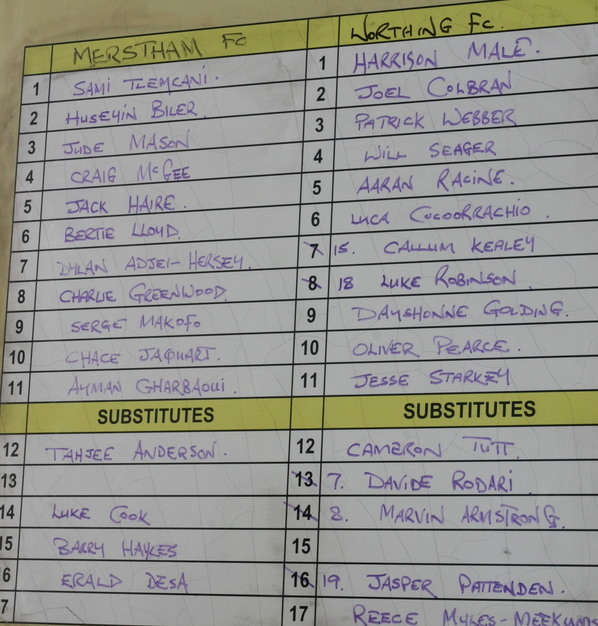 MERSTHAM FC WORTHING FC.
1 SAMI TLEMCANI. 1 HARRISON MALE.
2 HUSEYIN BILER 2 JOEL COLBRAN
3 JUDE MASON 3 PATRICK WEBBER
4 CRAIG McGEE 4 WILL SEAGER
5 JACK HAIRE. 5 AARAN RACINE.
6 BERTIE LLOYD. 6 LUCA COCOORRACHIO.
7 DYLAN ADJEI-HERSEY. 7 15. CALLUM KEALEY
8 CHARLIE GREENWOOD. 8 18 LUKE ROBINSON
9 SERGE MAKOFO 9 DAYSHONNE GOLDING.
10 CHACE JAQUART. 10 OLIVER PEARCE.
11 AYMAN GHARBAOUI. 11 JESSE STARKEY
SUBSTITUTES SUBSTITUTES
12 TAHJEE ANDERSON. 12 CAMERON TUTT.
13 13 7. DAVIDE RODARI
14 LUKE COOK 14 8. MARVIN ARMSTRONG.
15 BARRY HAYLES 15
6 ERALD DESA 16 19. JASPER PATTENDEN.
7 17 REECE MYLES-MEEKUMS